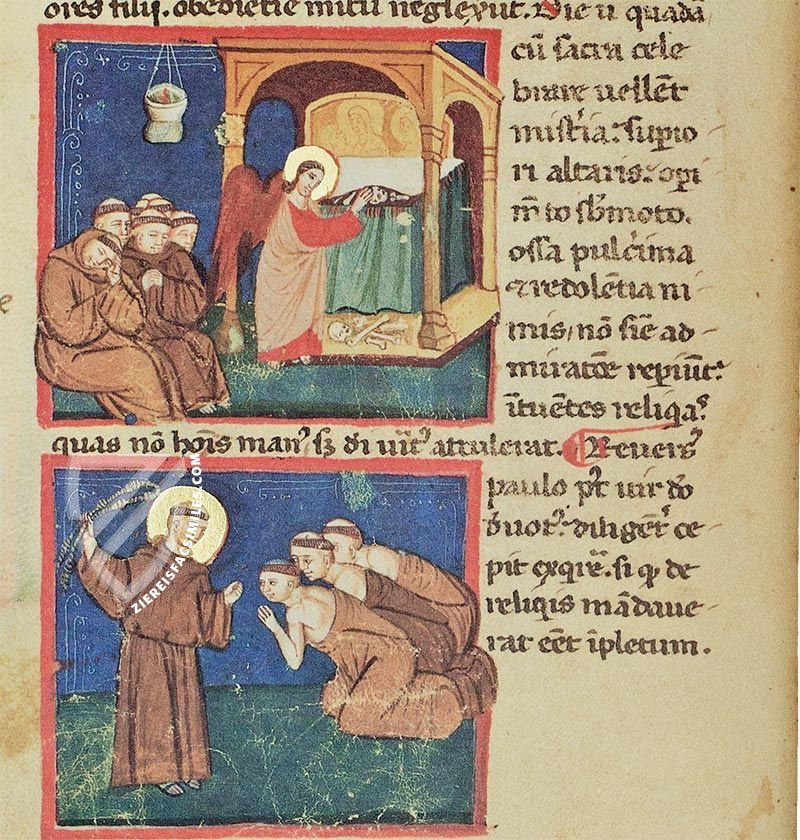 ores filij. obedietie mitū neglexūt. Die ū quadā
cū sacra cele
brare uellēt
mist'ia: supio
ri altaris: opi
m̄to sb̄moto.
ossa pulc̄ima
⁊ redolētia ni
mis, nō sīe ad
miratōe repiūt:
ītuētes reliq̄as
quas nō hoīs man' sꝫ di uirt' attulerat. Reuers'
paulo pt uir do
uot': diligēt' ce
pit exqr̄e. si qͥ de
reliqis mādaue
rat eēt īpletum.
ZIEREISFACSIMILES.COM